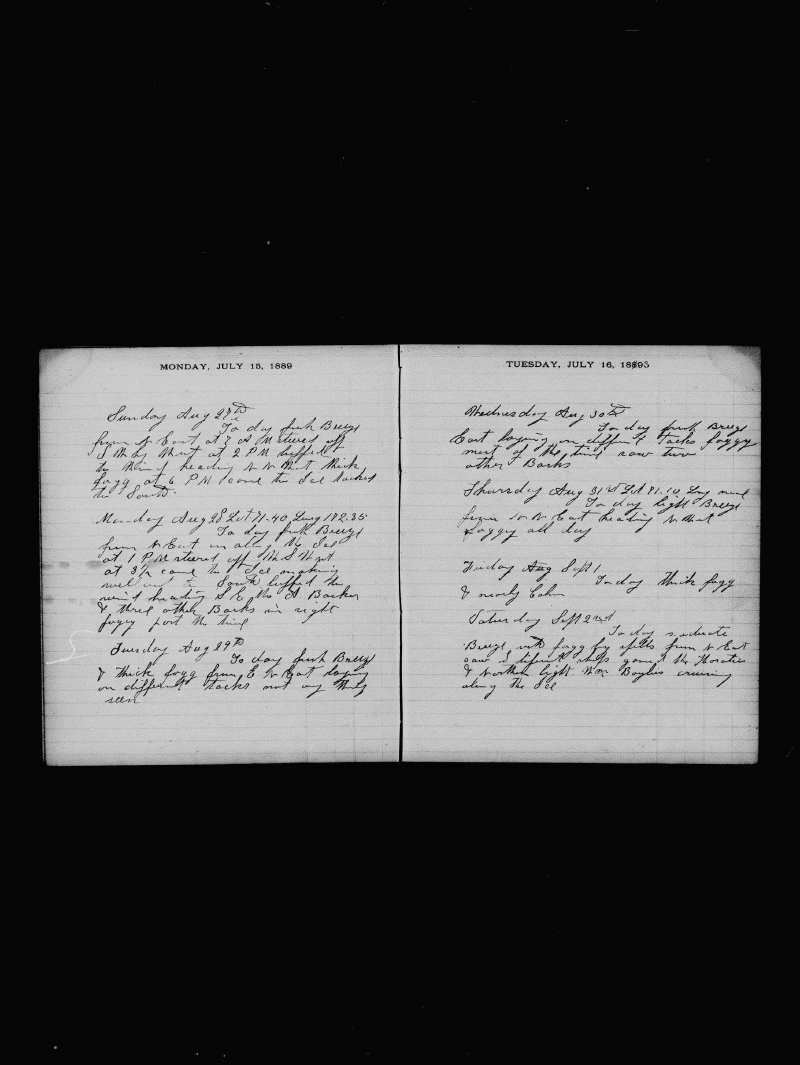 MONDAY, JULY 15, 1889
Sunday Aug 27th
To day fresh Breeze
from N East at 7 A M steered off
S W by West at 2 P M luffed
to the wind heading N N West thick
fogg at 6 P M came to Ice tacked
to South
Monday Aug 28 Lat 71-40 Long 172.35
To day fresh Breeze
from N East in along the Ice
at 1 P M steered off W S West
at 3½ came to Ice making
well out to South luffed the
wind heading S E the A Barker
& three other Barks in sight
foggy part the time
Tuesday Aug 29th
To day fresh Breeze
& thick fogg from E N East laying
on different tacks not any thing
seen
TUESDAY, JULY 16, 1893
Wednesday Aug 30th
To day fresh Breeze
East laying on different tacks foggy
most of the time saw two
other Barks
Thursday Aug 31st Lat 71.10 Long
To day light Breeze
from N N East heading N West
foggy all day
Friday Aug Sept 1
To day thick fogg
& nearly Calm
Saturday Sept 2nd
To day moderate
Breeze with fogg by spells from N East
saw different ships gamed the Horatio
& Northern light Wm Baylies cruising
along the Ice